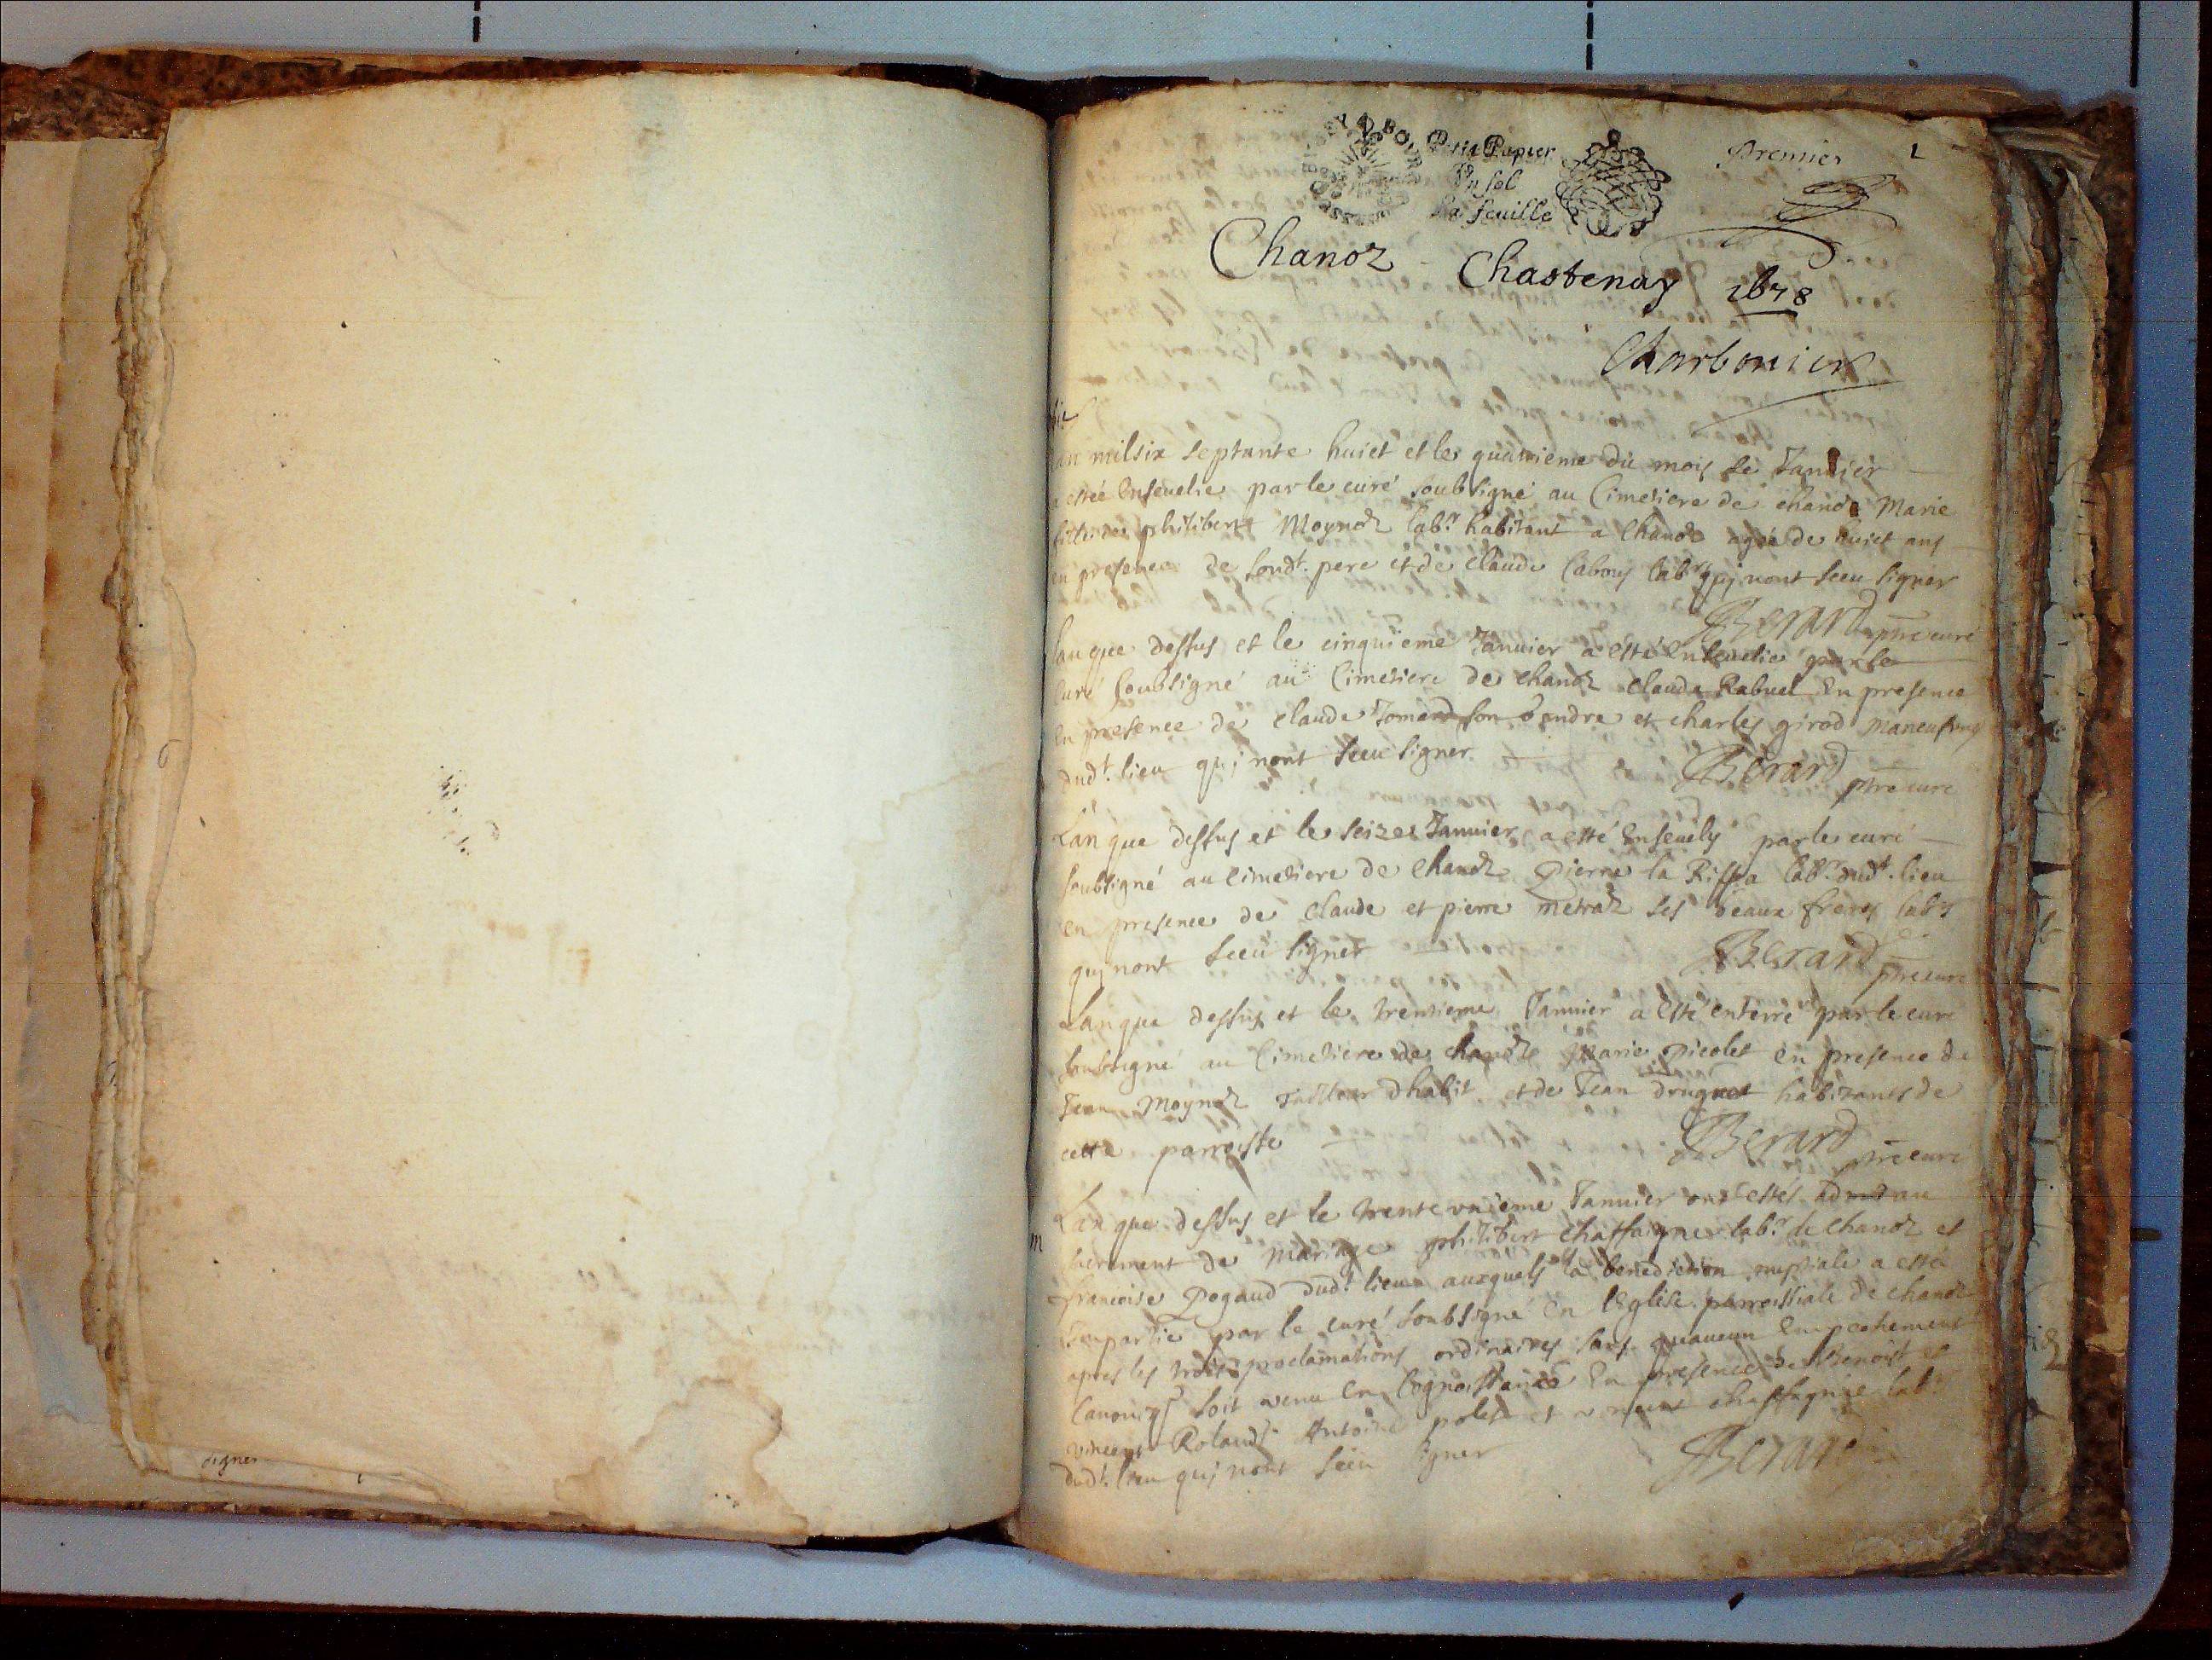 Petit Papier
Vn sol
La feuille
Premier 1
Chanoz Chastenay 1678
Charbonier
an mil six septante huict et le quatrieme du mois de Januier
a esteé Enseuelie par le curé soubsigné au Cimetiere de chanoz Marie
fille de philibert Moynoz labr. habitant a Chanoz agée de huict ans
en presence de sondt. pere et de claude labouy labrs quj nont sceu signer
Berard ptre curé
Lan que dessus et le cinquieme Januier a esté Enseuelie par le
curé soubsigné au Cimetiere de chanoz claude Rabuel En presence
En presence de claude Jomard son Gendre et charles girod
dudt. lieu quj nont sceu signer.
Berard ptre curé
Lan que dessus et le seize Januier a esté Enseuely par le curé
soubsigné au Cimetiere de Chanoz pierre la Rissa labr. dudt. lieu
en presence de Claude et pierre metraz ses beaux freres labrs
quj nont sceu signer
Berard ptre curé
Lan que dessus et le trentieme Januier a esté enterré par le curé
soubsigné au Cimetiere de chanoz Marie picolet en presence de
Jean Moynoz tailleur dhabit et de Jean druguet habitants de
cette parroisse
Berard ptre curé
m
Lan que dessus et le trente vnieme Januier ont estés au
sacrement de Mariage philibert chassaigne labr. de Chanoz et
francoise Pogaud dudt. lieu auxquels la benediction nuptiale a esté
Impartie par le curé soubsigné En lEglise parroissiale de chanoz
apres les trois proclamations ordinaires sans quaucun Empechement
Canonique soit venu En Cognoissance En presence de Benoist et
vincent Rolands Antoine polet et chassagne labrs
dudt. lieu quj nont sceu signer
Berard
signer